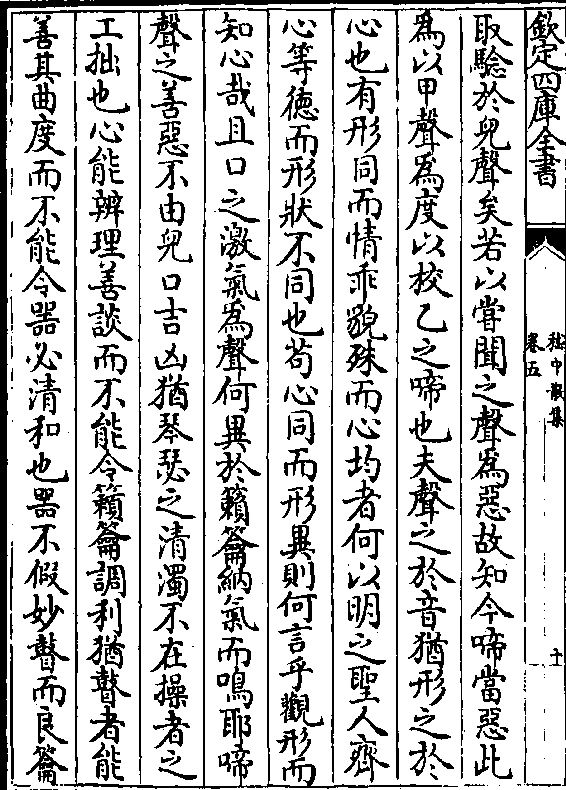 欽定四庫全書
嵇中散集
卷五
十
取驗於兒聲矣若以嘗聞之聲爲惡故知今啼當惡此
爲以甲聲爲度以校乙之啼也夫聲之於音猶形之於
心也有形同而情乖貌殊而心均者何以明之聖人齊
心等徳而形狀不同也苟心同而形異則何言乎觀形而
知心哉且口之激氣爲聲何異於籟籥納氣而鳴耶啼
聲之善惡不由兒口吉凶猶琴瑟之清濁不在操者之
工拙也心能辨理善談而不能令籟籥調利猶瞽者能
善其曲度而不能令器必清和也器不假妙瞽而良籥